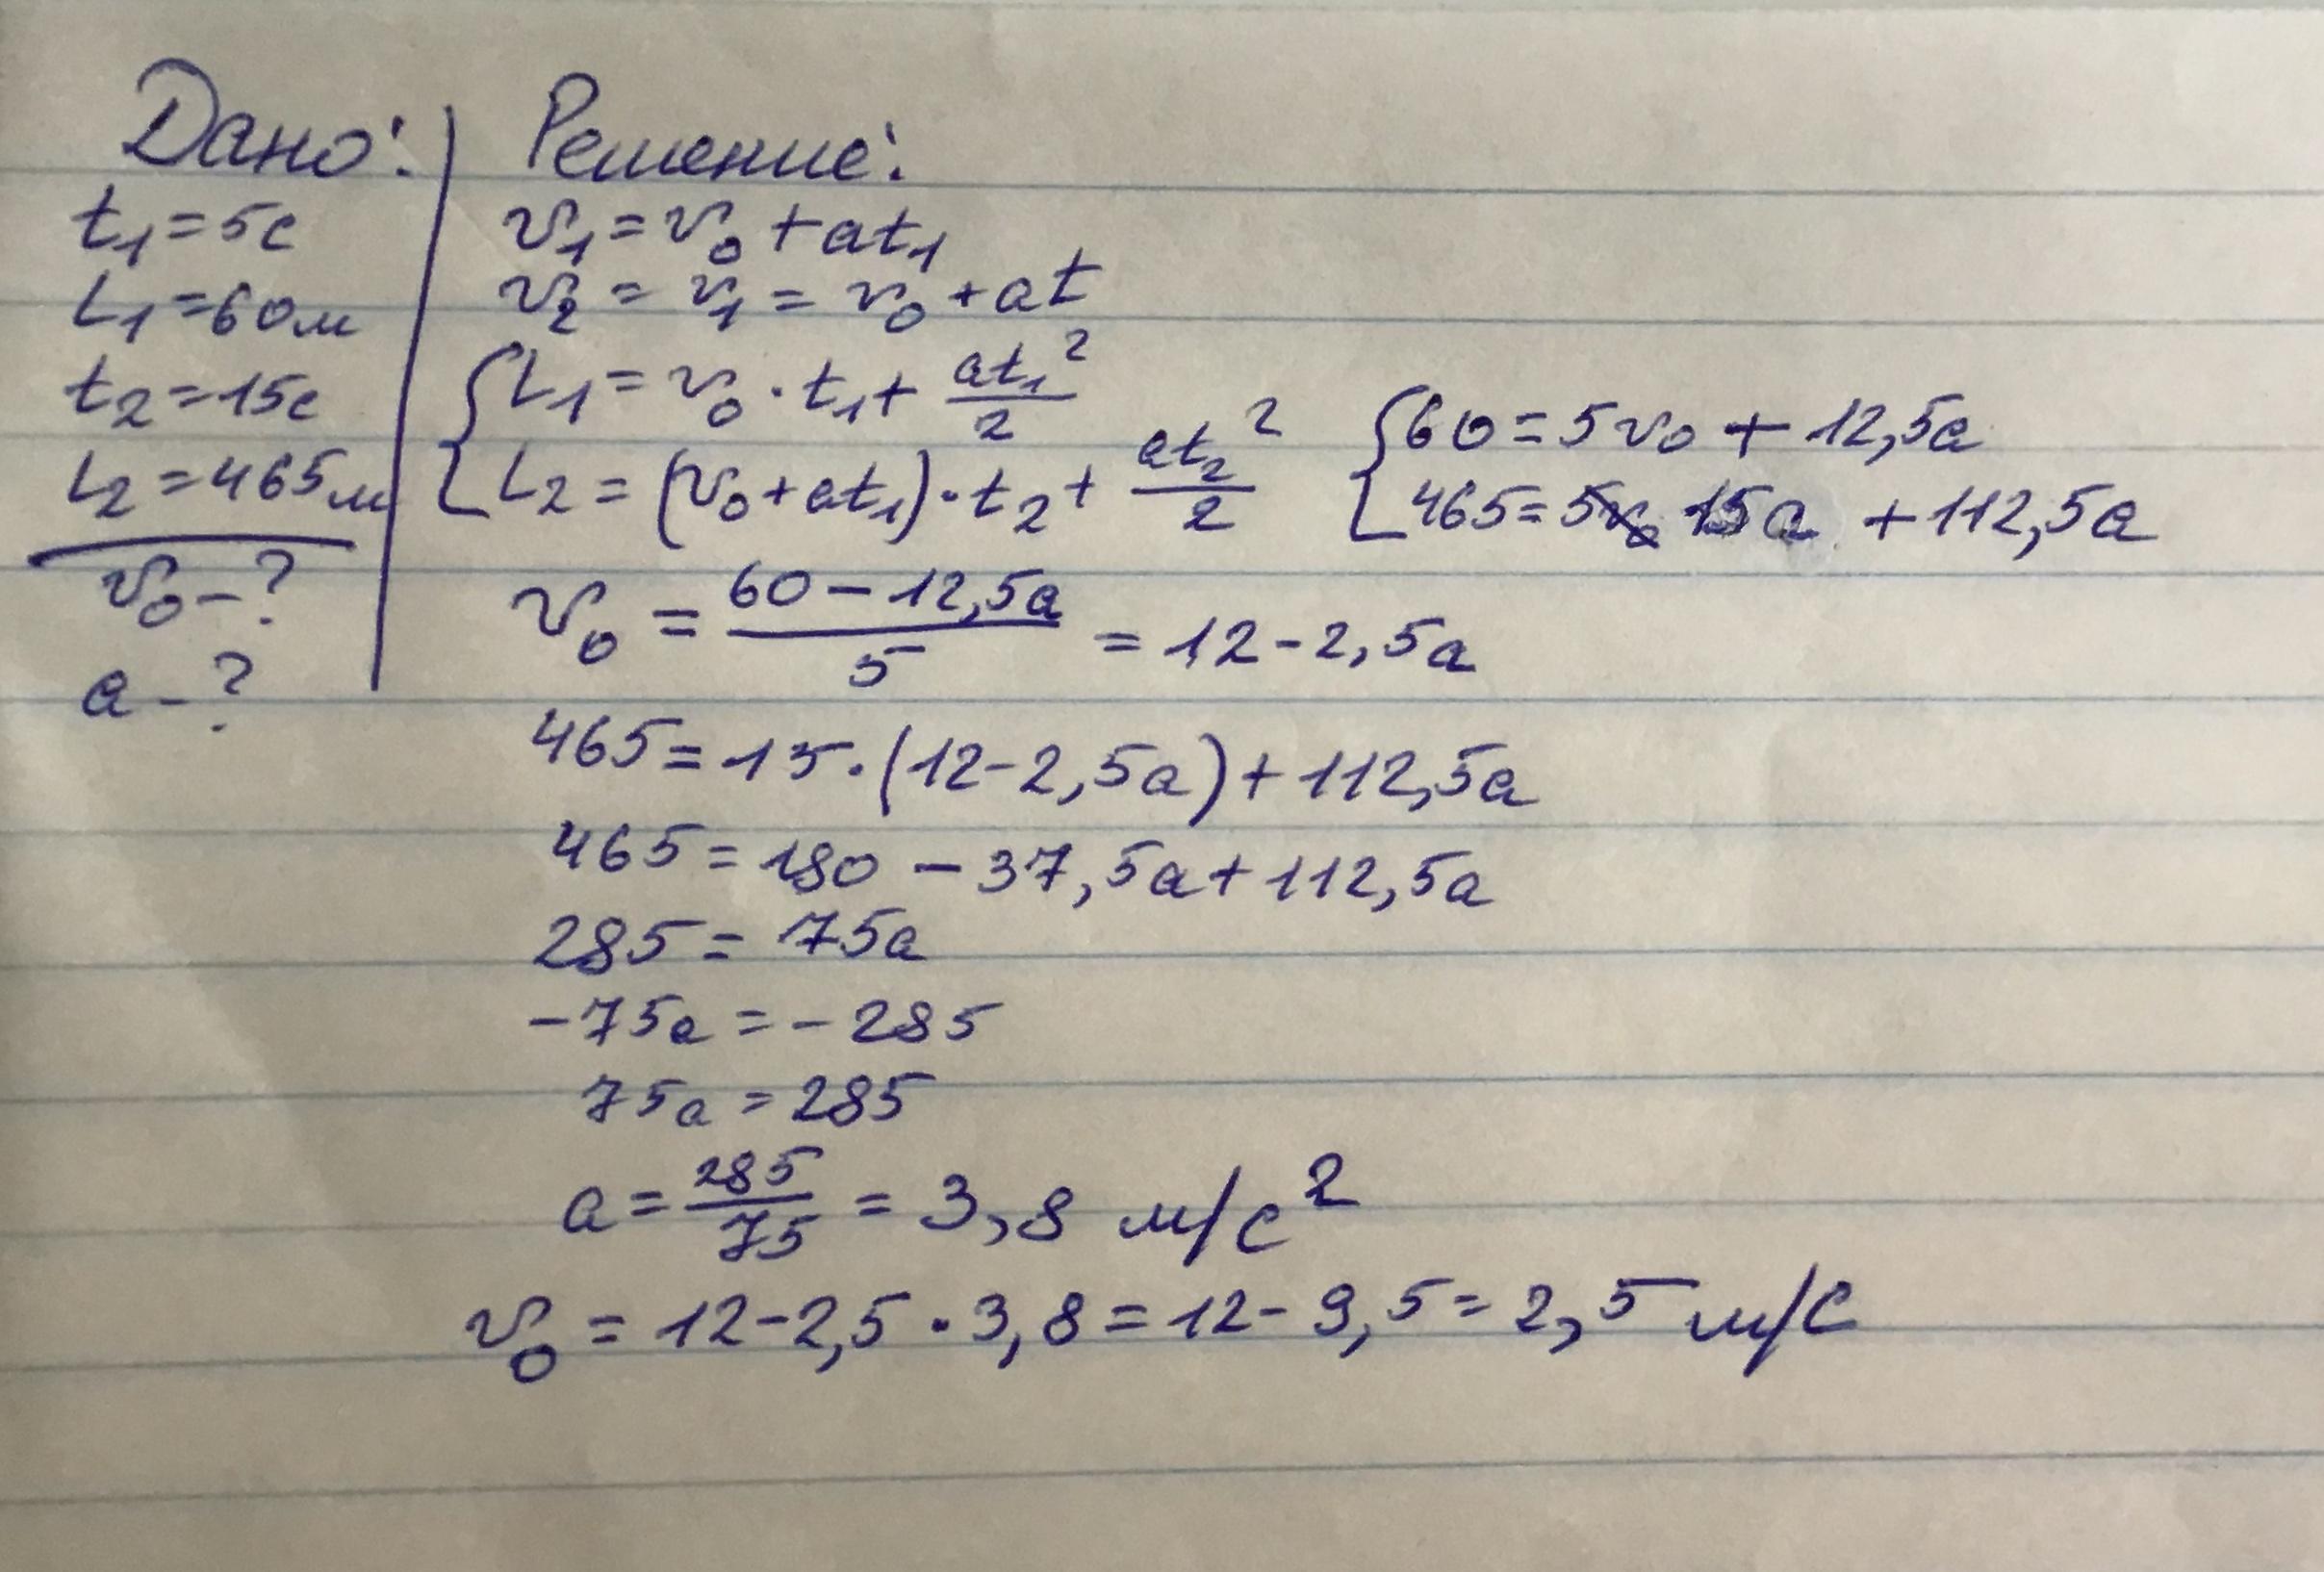 Дано:
t₁=5с
L₁=60м
t₂=15с
L₂=465м
v₀-?
a-?
Решение:
v₁=v₀+at₁
v₂=v₁=v₀+at
{L₁=v₀·t₁+at₁²/2
{L₂=(v₀+at₁)·t₂+at₂²/2
{60=5v₀+12,5a
{465=5v₀ 15a+112,5a
v₀=(60-12,5a)/5=12-2,5a
465=15·(12-2,5a)+112,5a
465=180-37,5a+112,5a
285=75a
-75a=-285
75a=285
a=285/75=3,8 м/с²
v₀=12-2,5·3,8=12-9,5=2,5 м/с